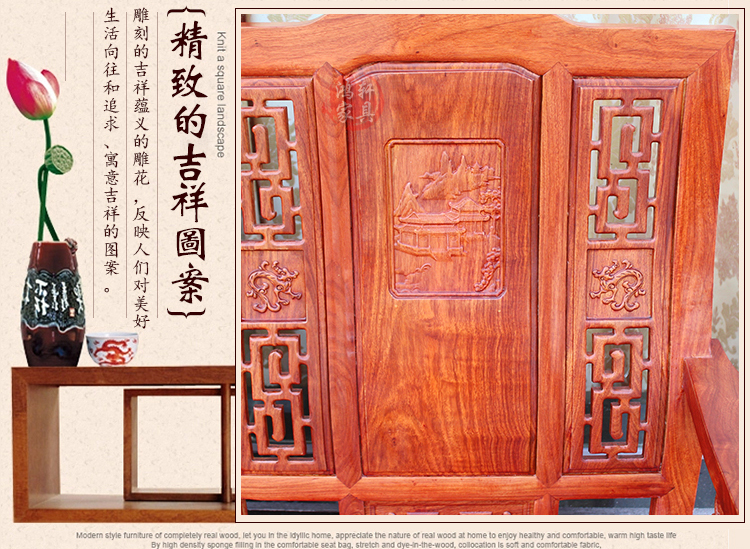 {精致的吉祥圖案}
Knit a square landscape
雕刻的吉祥蕴义的雕花，反映人们对美好
生活向往和追求、寓意吉祥的图案。
鸿轩
家具
Modern style furniture of completely real wood, let you in the idyllic home, appreciate the nature of real wood at home to enjoy healthy and comfortable, warm high taste life
By high density sponge filling in the comfortable seat bag, stretch and dye-in-the-wood, collocation is soft and comfortable fabric,